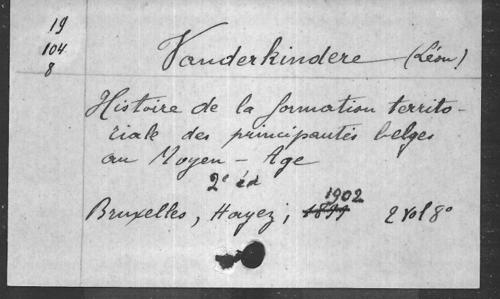 19
104
8
Vanderkindere (Léon)
Histoire de la formation territo-
riale des principautés belges
au Moyen - Age
2e éd
1902
Bruxelles, Hayez, 1899 2 vol 8o